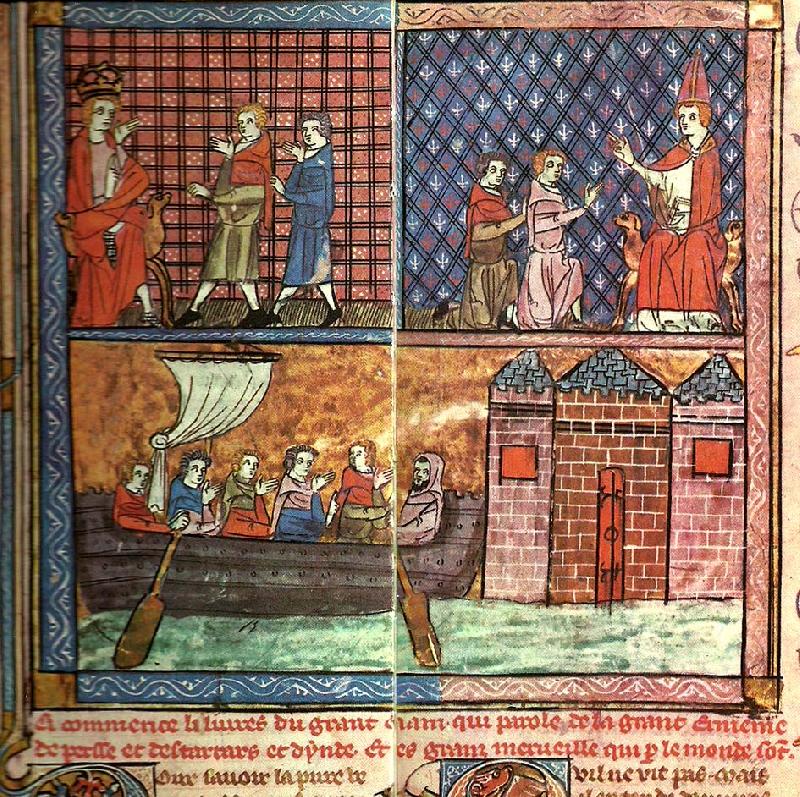 Ci commence li liures du grant caam qui parole de la grant ermenie
de persse et des tartars et dynde. Et es granz merueille qui p le monde sot.
Our sauoir la pure ve
vil ne vit pas mais